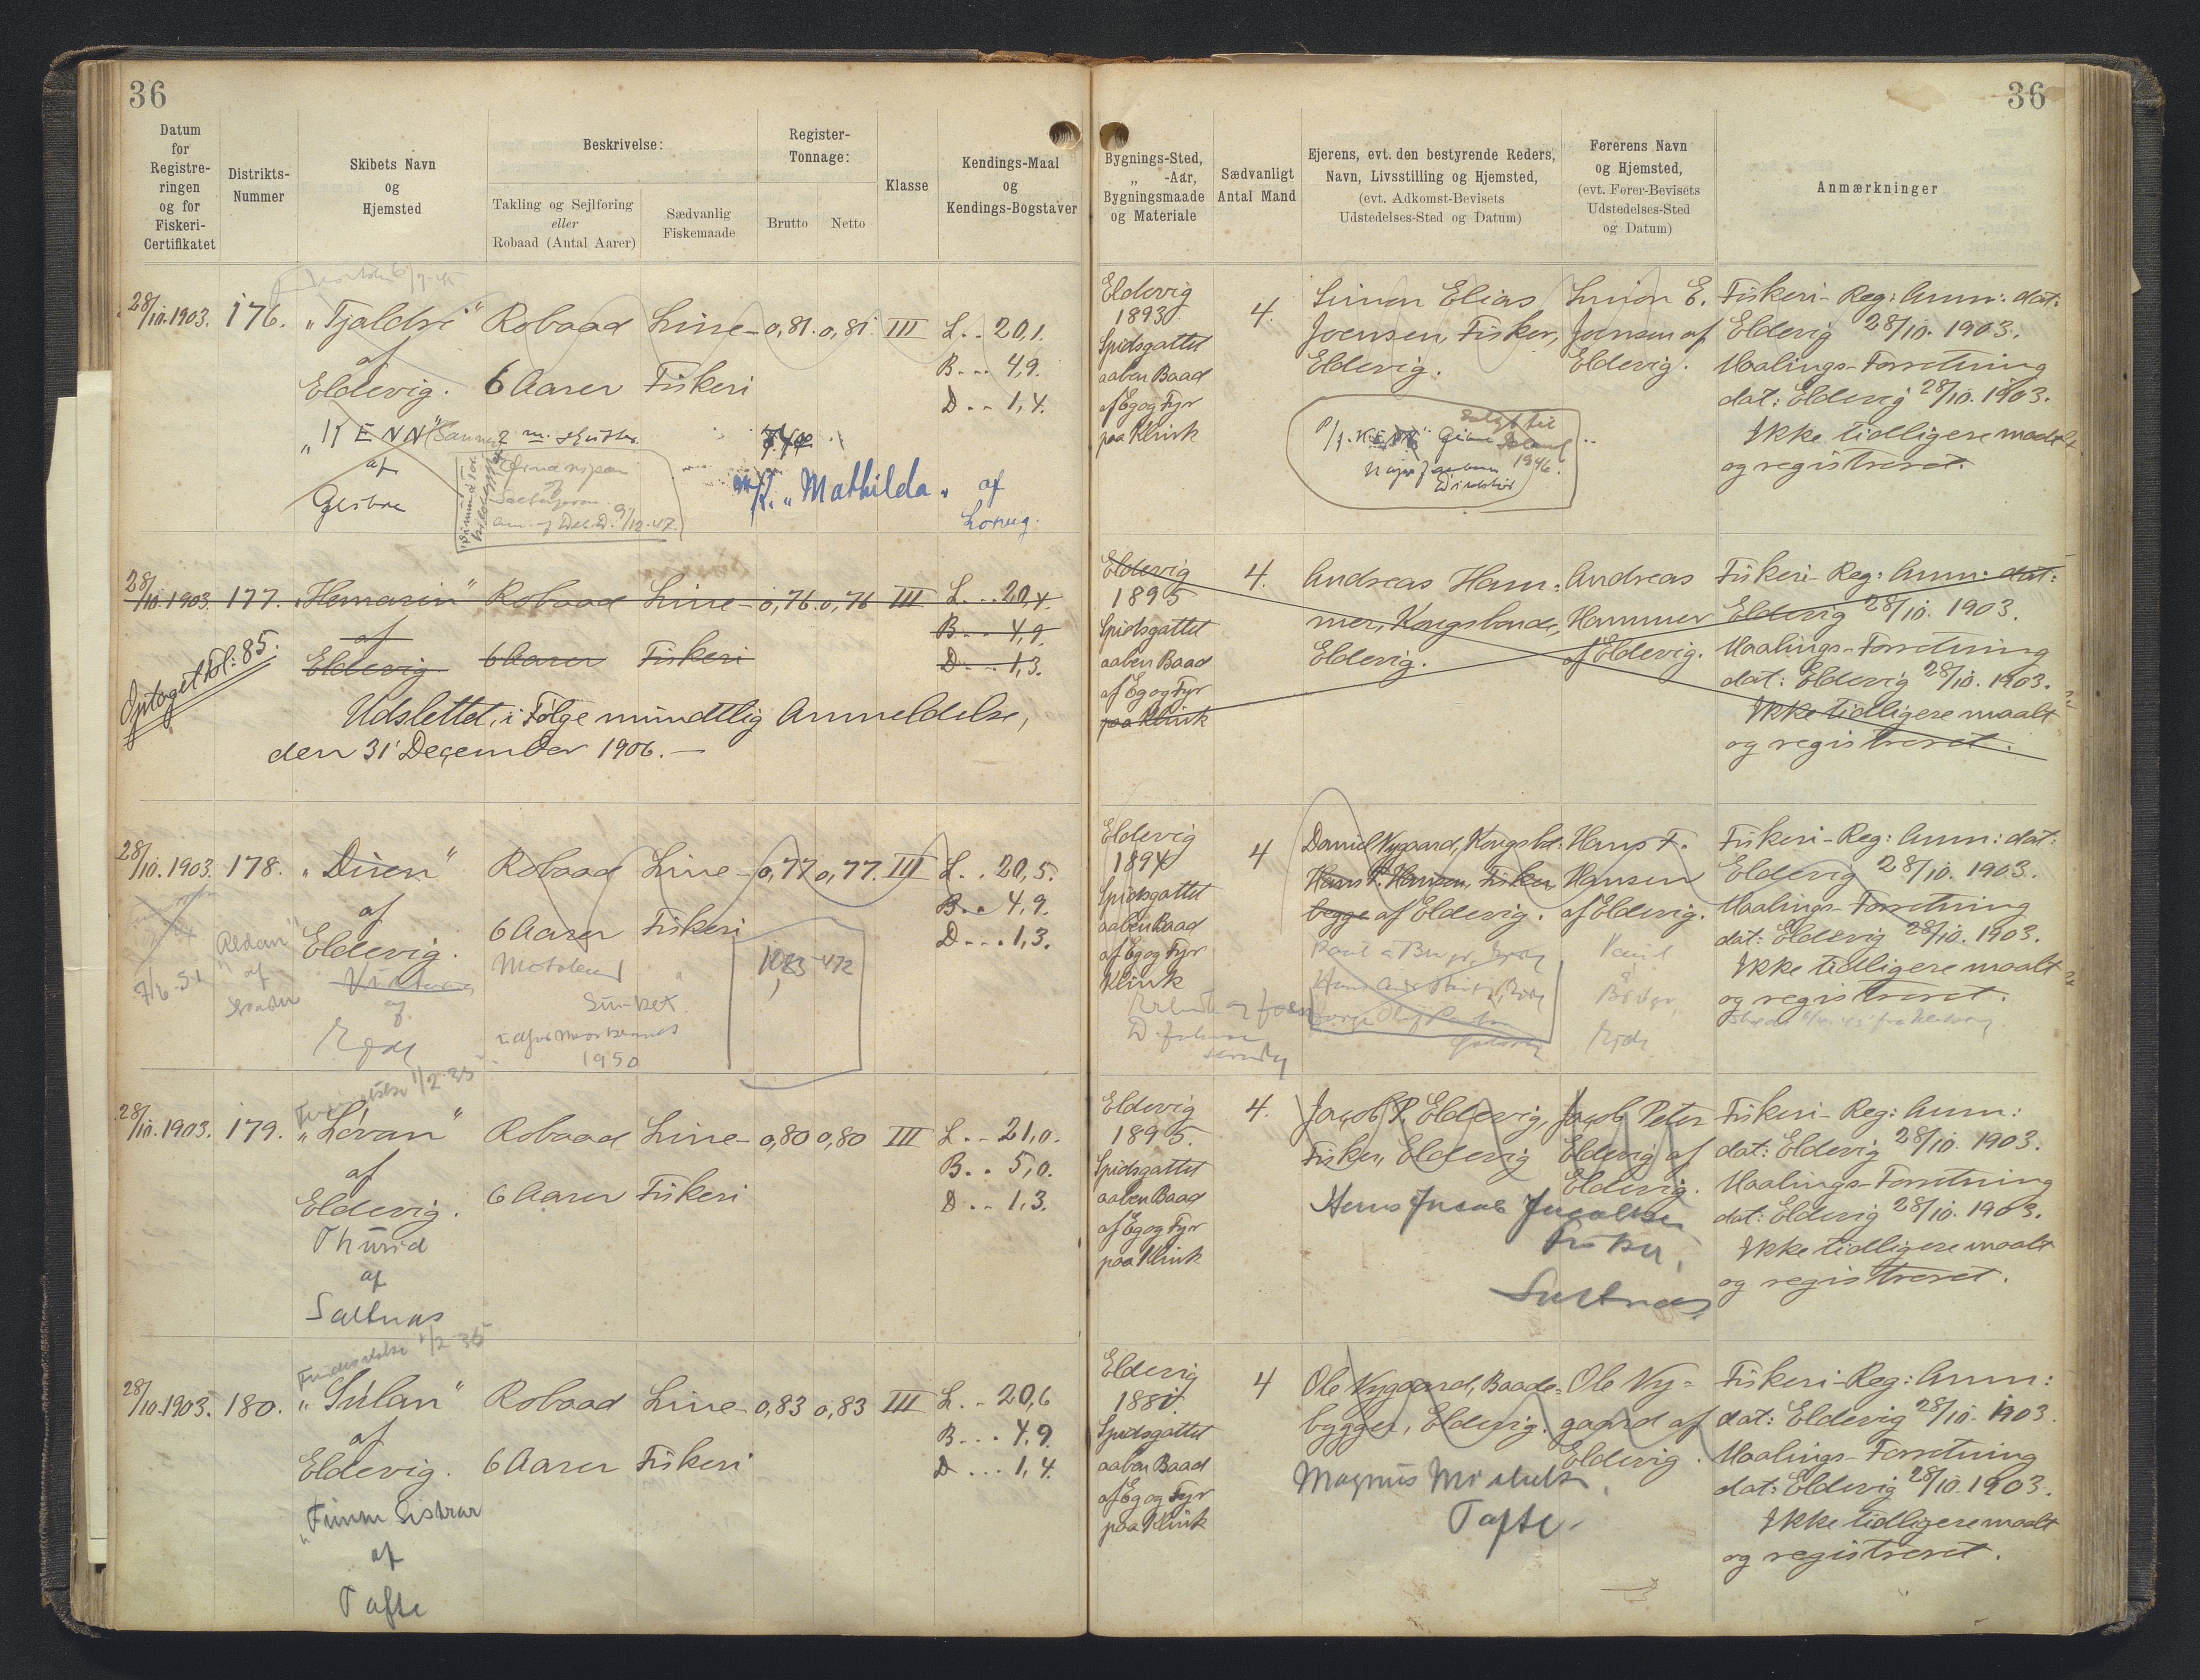 36
36
Datum
for
Registre-
ringen
og for
Fiskeri-
Certifikatet
Distrikts-
Nummer
Skibets Navn
og
Hjemsted
Beskrivelse:
Takling og Sejlføring
eller
Robaad (Antal Aarer)
Sædvanlig
Fiskemaade
Register-
Tonnage:
Brutto Netto
Klasse
Kendings-Maal
og
Kendings-Bogstaver
Bygnings-Sted,
„ -Aar,
Bygningsmaade
og Materiale
Sædvanligt
Antal Mand
Ejerens, evt. den bestyrende Reders,
Navn, Livsstilling og Hjemsted,
(evt. Adkomst-Bevisets
Udstedelses-Sted og Datum)
Førerens Navn
og Hjemsted,
(evt. Fører-Bevisets
Udstedelses-Sted
og Datum)
Anmærkninger
28/10.1903. 176. „Tjaldri“ Robaad Line- 0,81. 0,81. III L. . 20,1.
af
Eldevig. 6 Aarer Fiskeri
B. . . 4,9.
D. . . 1,4.
„KENN“
af
„Mathilda“ af
Eldevig
1893.
Spidsgattet
aaben Baad
af Eg og Fyr
paa Klink
4.
Simon Elias
Joensen, Fisker,
Eldevig.
Simon E.
Joensen af
Eldevig.
Fiskeri-Reg: Anm: dat:
Eldevig 28/10. 1903.
Maalings-Forretning
dat: Eldevig 28/10. 1903.
Ikke tidligere maalt
og registreret.
solgt til
1946.
28/10.1903. 177. Robaad Line- 0,76. 0,76 III L. . . 20,4.
af
Eldevig 6 Aarer Fiskeri
B. . . 4,9.
D. . . 1,3.
Optaget Fol: 85.
Udslettet, i Følge mundtlig Anmeldelse,
den 31' December 1906. —
Eldevig
1895
Spidsgattet
aaben Baad
af Eg og Fyr
paa Klink
4.
Andreas Ham=
mer, Kongsbonde,
Eldevig.
Andreas
Hammer
af Eldevig.
Fiskeri-Reg: Anm: dat:
Eldevig 28/10. 1903.
Maalings-Forretning
dat: Eldevig 28/10. 1903.
Ikke tidligere maalt
og registreret.
28/10.1903. 178. „Disen“ Robaad Line- 0,77 0,77. III L. . 20,5.
af
Eldevig. 6 Aarer Fiskeri
B. . 4,9.
D. . . 1,3.
af
af
1950
Eldevig
1894
Spidsgattet
aaben Baad
af Eg og Fyr
Klink
4
Daniel Nygaard, Kongsbd:
Hans F. Hansen, Fisker,
begge af Eldevig.
Hans F.
Hansen
af Eldevig.
Fiskeri-Reg: Anm: dat:
Eldevig 28/10. 1903.
Maalings-Forretning
dat: Eldevig 28/10. 1903.
Ikke tidligere maalt
og registreret.
28/10.1903. 179. „Lóvan“ Robaad Line- 0,80 0,80 III L. . 21,0.
af
Eldevig. 6 Aarer Fiskeri
B. . 5,0.
D. . . 1,3.
Thurid
af
Saltnas
Eldevig
1895.
Spidsgattet
aaben Baad
af Eg og Fyr
paa Klink
4.
Jacob P. Eldevig,
Fisker, Eldevig
Jacob Peter
Eldevig af
Eldevig.
Fisker,
Fiskeri-Reg: Anm:
dat: Eldevig 28/10. 1903.
Maalings-Forretning
dat: Eldevig 28/10. 1903.
Ikke tidligere maalt
og registreret.
28/10.1903. 180. „Súlan“ Robaad Line- 0,83 0,83 III L. . 20,6
af
Eldevig. 6 Aarer Fiskeri
B. . . 4,9.
D. . . 1,4.
af
Tafte
Eldevig
Spidsgattet
aaben Baad
af Eg og Fyr
paa Klink
4
Ole Nygaard, Baade-
bygger, Eldevig.
Magnus
Tafte.
Ole Ny=
gaard af
Eldevig.
Fiskeri-Reg: Anm:
dat: Eldevig 28/10. 1903.
Maalings-Forretning
dat: Eldevig 28/10. 1903.
Ikke tidligere maalt
og registreret.